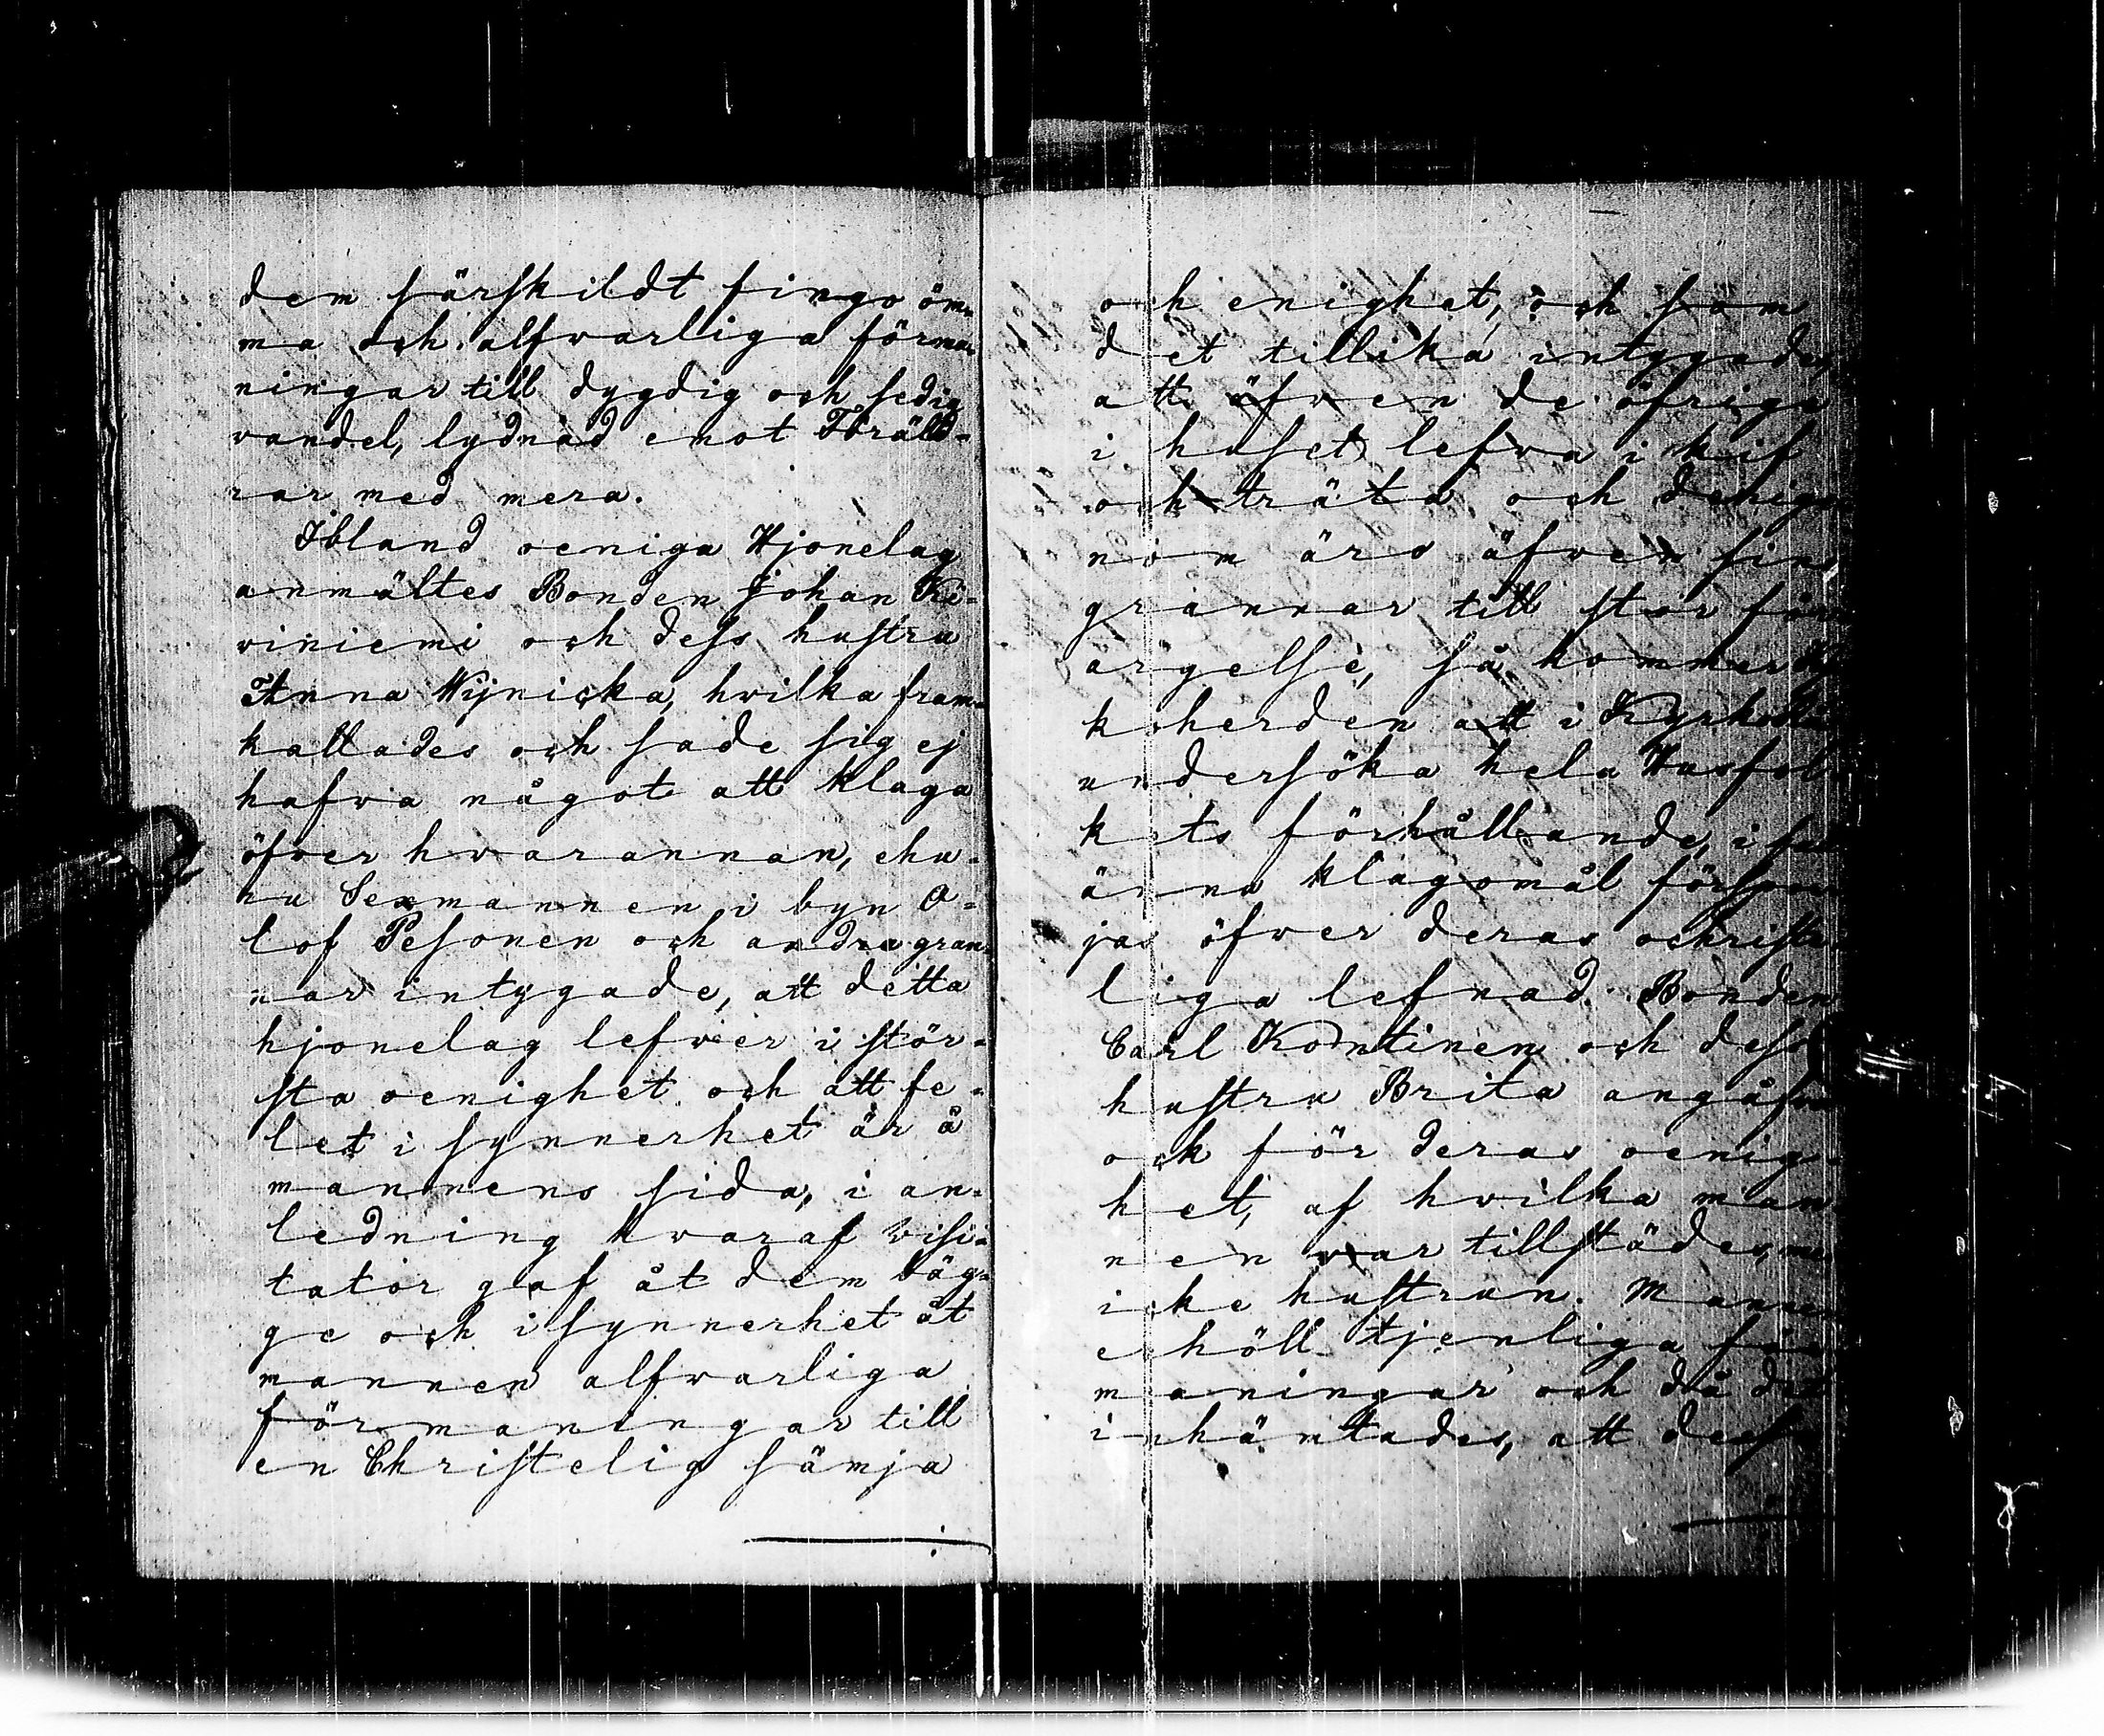 dem särskildt fingo öm=
ma och alfvarliga förma=
ningar till dygdig och sedig
vandel, lydnad emot Föräld=
rar med mera.
Ibland oeniga Hjonelag
anmältes Bonden Johan Ke=
viniemi och dess hustru
Anna Hijnicka, hvilka fram=
kallades och sade sig ej
hafva något att klaga
öfver hvarannan, ehu=
ru Sexmannen i byn O=
lof Pesonen och andra gran=
nar intygade, att detta
hjonelag lefver i stör=
sta oenighet och att fe=
let i synnerhet är å
mannens sida, i an=
ledning hvaraf visi=
tator gaf åt dem bäg=
ge och i synnerhet åt
mannen alfvarliga
förmaningar till
en Christelig sämja
och enighet, och som
det tillika intygades
att äfven de öfriga
i huset lefva i kif
och träta och derige
nom äro äfven sina
grannar till stor för
argelse, så kommer Ky
koherden att i Kyrkorå
undersöka hela Husfol=
kets förhållande, i fal
ännu klagomål förspör
jas öfver deras ochrist
liga lefnad. Bonden
Carl Kontinen och dess
hustru Brita angåfvo
ock för deras oenig=
het, af hvilka man
nen var tillstädes, me
icke hustrun. Mannen
ehöll tjenliga för
maningar och då det
inhämtades, att dess